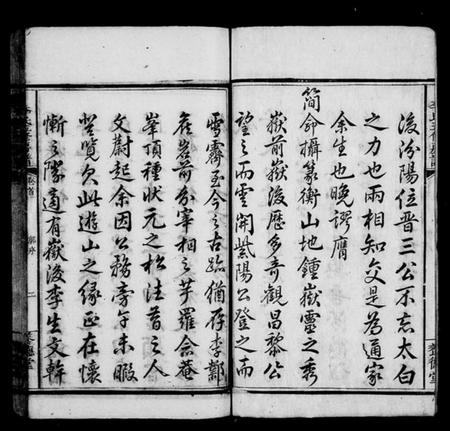 後汾陽位晉三公不忘太白
之力也兩相知交是為通家
余生也晚謬膺
簡命攝篆衡山地鍾嶽靈之秀
嶽前嶽後歷多奇觀昌黎公
望之而雲開紫陽公登之而
雪霽至今之古跡猶存李鄴
侯岩前分宰相之芋羅念菴
峯頂種狀元之松法昔之人
文蔚起余因公務旁午未暇
登覽欠此遊山之緣正在懷
慚之際適有嶽後李生文幹